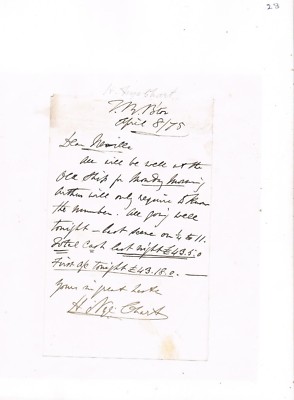 23
H. Nye Chart
T. R. B'ton
April 8/75
Dear Neville
All will be well at the
Old Ship for Monday Morning
Arthur will only require to know
the number. All going well
tonight – last scene on ¼ to 11.
Total Cash last night £43.5.0
First a/c tonight £43.18.0. —
Yours in great haste
H. Nye Chart